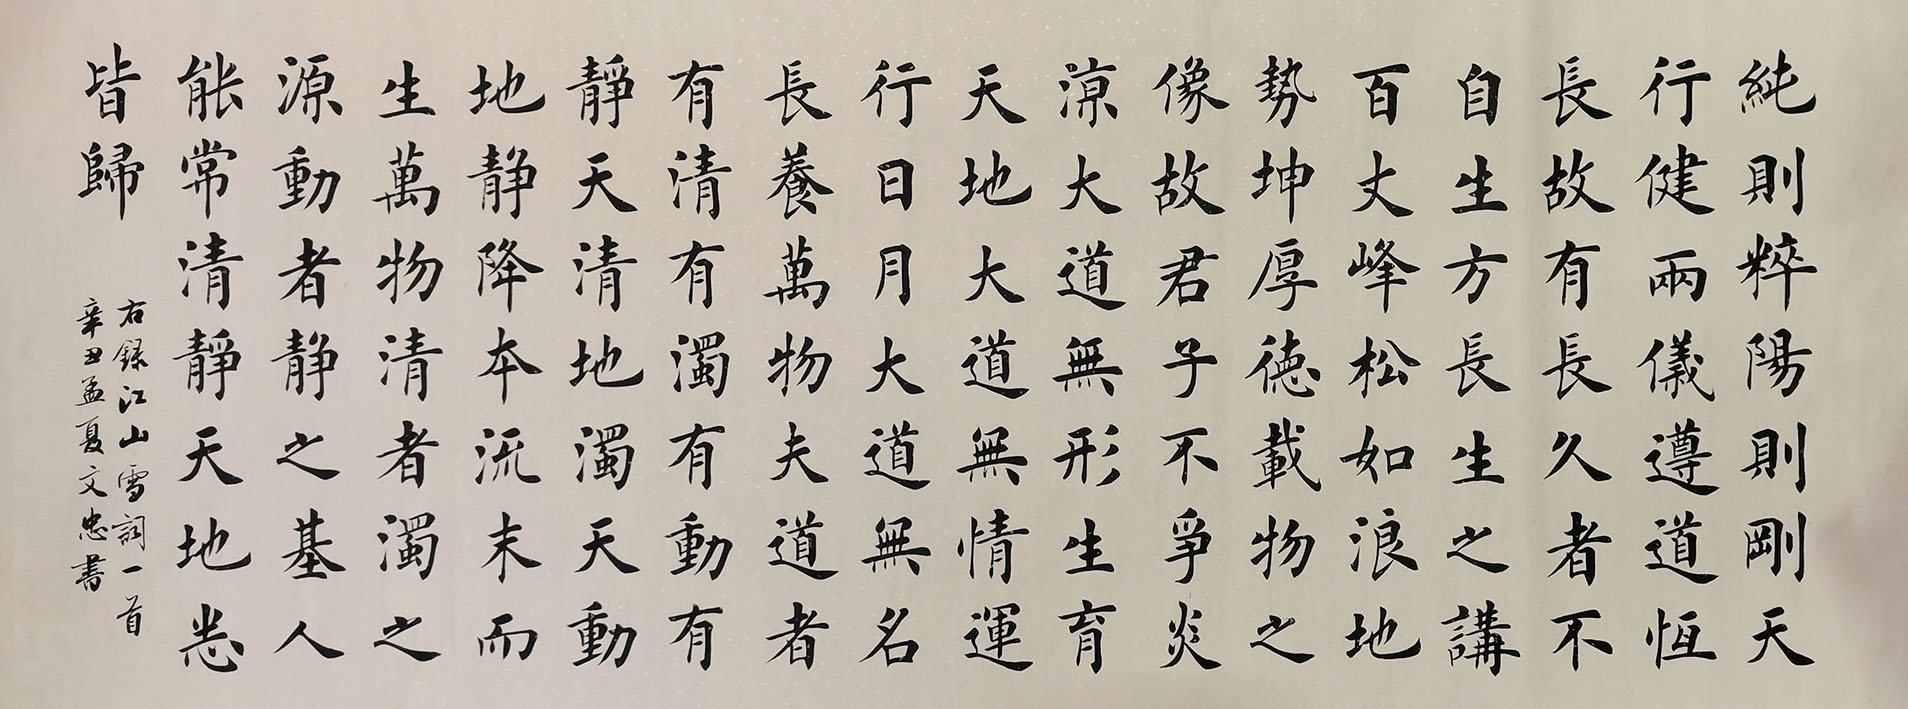 純則粹陽則剛天
行健兩儀遵道恆
長故有長久者不
自生方長生之講
百丈峰松如浪地
勢坤厚德載物之
像故君子不爭炎
涼大道無形生育
天地大道無情運
行日月大道無名
長養萬物夫道者
有清有濁有動有
靜天清地濁天動
地静降本流末而
生萬物清者濁之
源動者静之基人
能常清靜天地悉
皆歸
右録江山雪詞一首
辛丑孟夏文忠書